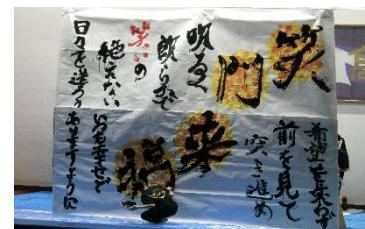 笑門来福
希望を失わず
前を見て
突き進め
明るく
朗らかで
笑いの
絶えない
日々を送ろう
いつも幸せで
ありますように